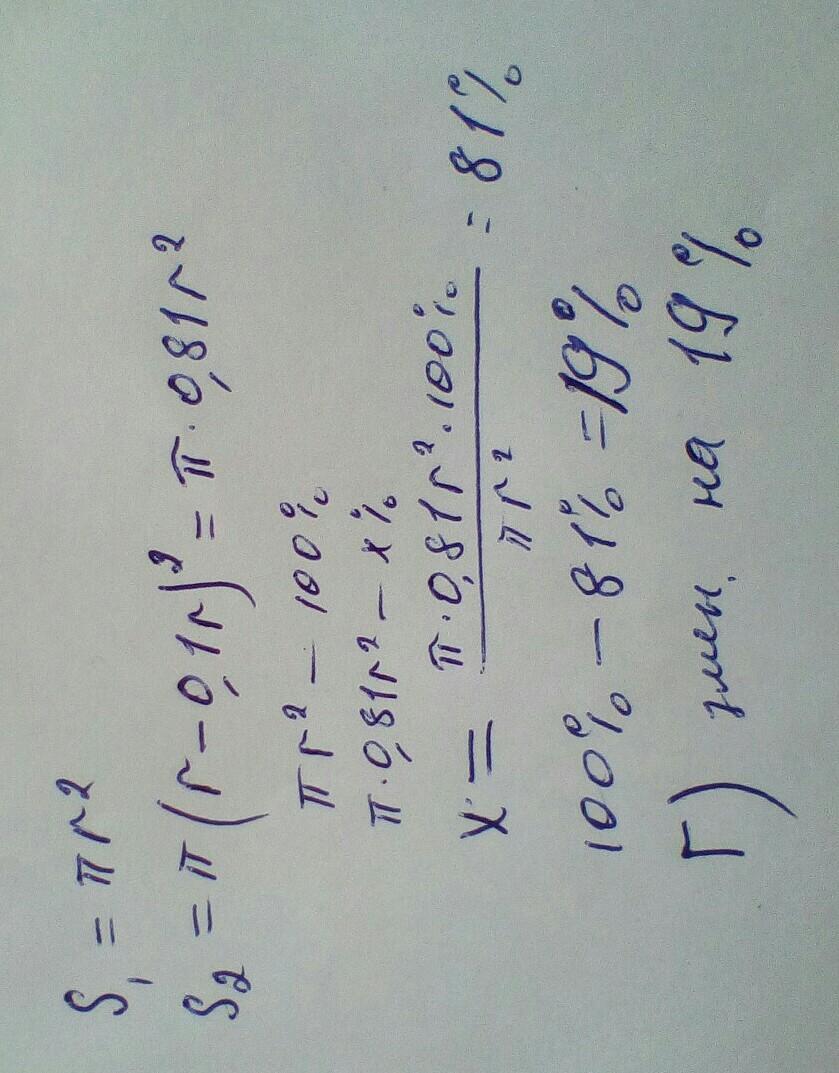 S₁ = πr²
S₂ = π(r-0,1r)² = π·0,81r²
πr² - 100%
π·0,81r² - x%
x = π·0,81r²·100% / πr² = 81%
100% - 81% = 19%
Г) змен. на 19%